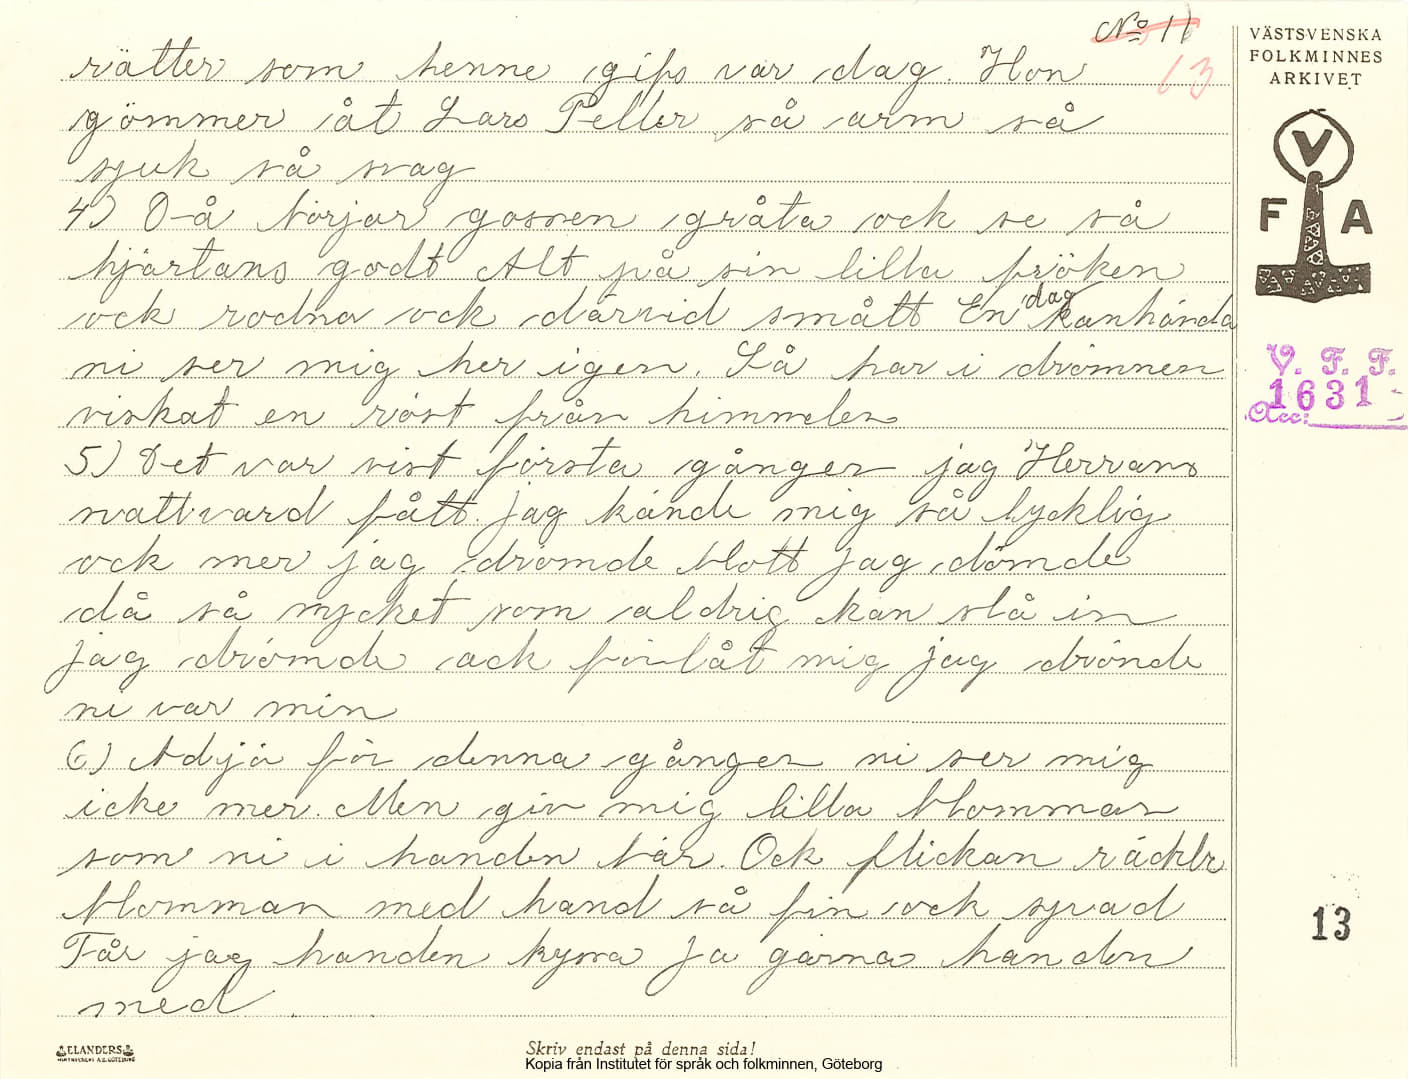 No 11
13
rätter som henne gifs var dag. Hon
gömmer åt Lars Peller så arm så
sjuk så svag
4) Då börjar gossen gråta ock se så
hjärtans godt Alt på sin lilla fröken
ock rodna ock därvid smått En dag kanhända
ni ser mig her igen. Så har i drömmen
viskat en röst från himmelen
5) Det var vist första gången jag Herrans
nattvard fått. jag kände mig så lycklig
ock mer jag drömde blott jag dömde
då så mycket som aldrig kan slå in
jag drömde ack förlåt mig jag drönde
ni var min
6) Adjö för denna gången ni ser mig
icke mer. Men giv mig lilla blomman
som ni i handen bär. Ock flickan räckte
blomman med hand så fin ock spad
Får jag handen kyssa Ja gärna handen
med.
VÄSTSVENSKA
FOLKMINNES
ARKIVET
V
F A
V. F. F.
1631
Acc:
13
ELANDERS
Skriv endast på denna sida!
Kopia från Institutet för språk och folkminnen, Göteborg